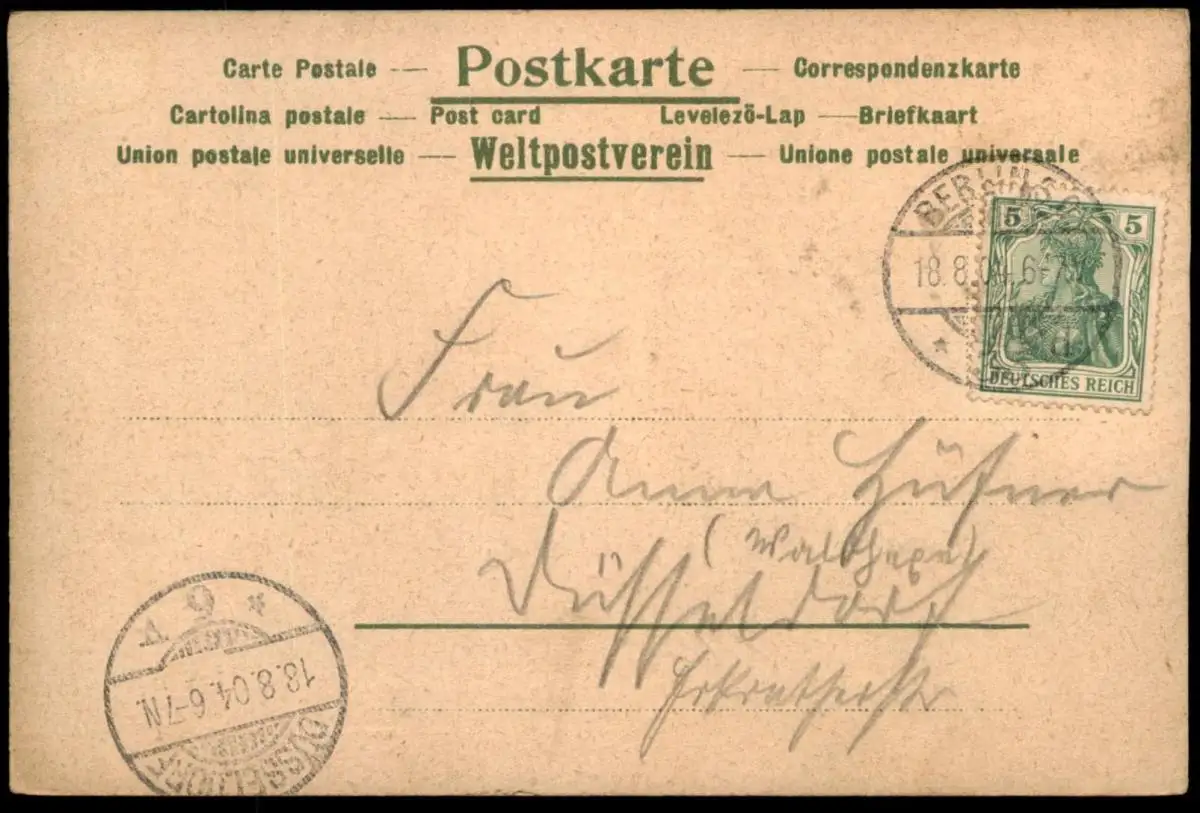 Carte Postale — Postkarte — Correspondenzkarte
Cartolina postale — Post card Levelezö-Lap — Briefkaart
Union postale universelle — Weltpostverein — Unione postale universale
BERLIN
18.8.04. 6-7V
5 5
DEUTSCHES REICH
Frau
Anna Hüfner
Düsseldorf
Erkratherstr
DÜSSELDORF
18.8.04. 6-7N.